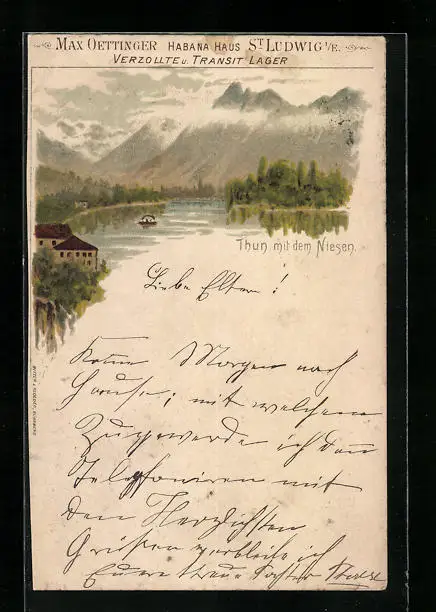 Max Oettinger Habana Haus St. Ludwig i/E.
Verzollte u. Transit Lager
Thun mit dem Niesen.
Liebe Eltern!
Komme Morgen nach
Hause; mit welchem
Zuge werde ich dann
Telefoniren mit
den Herzlichsten
Grüßen verbleibe ich
Eure treue Tochter